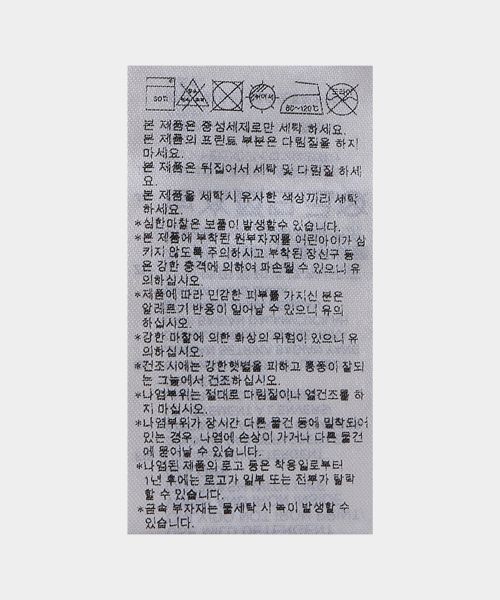 80~120℃
드라이
본 제품은 중성세제로만 세탁 하세요.
본 제품의 프린트 부분은 다림질을 하지
마세요.
본 제품은 뒤집어서 세탁 및 다림질 하세
요.
본 제품을 세탁시 유사한 색상끼리 세탁
하세요.
*심한마찰은 보풀이 발생할수 있습니다.
*본 제품에 부착된 원부자재를 어린아이가 삼
키지 않도록 주의하시고 부착된 장신구 등
은 강한 충격에 의하여 파손될수 있으니 유
의하십시오.
*제품에 따라 민감한 피부를 가지신 분은
알레르기 반응이 일어날 수 있으니 유의
하십시오.
*강한 마찰에 의한 화상의 위험이 있으니 유
의하십시오.
*건조시에는 강한햇볕을 피하고 통풍이 잘되
는 그늘에서 건조하십시오.
*나염부위는 절대로 다림질이나 열건조를 하
지 마십시오.
*나염부위가 장시간 다른 물건 등에 밀착되어
있는 경우, 나염에 손상이 가거나 다른 물건
에 묻어날 수 있습니다.
*나염된 제품의 로고 등은 착용일로부터
1년 후에는 로고가 일부 또는 전부가 탈락
할 수 있습니다.
*금속 부자재는 물세탁 시 녹이 발생할 수
있습니다.